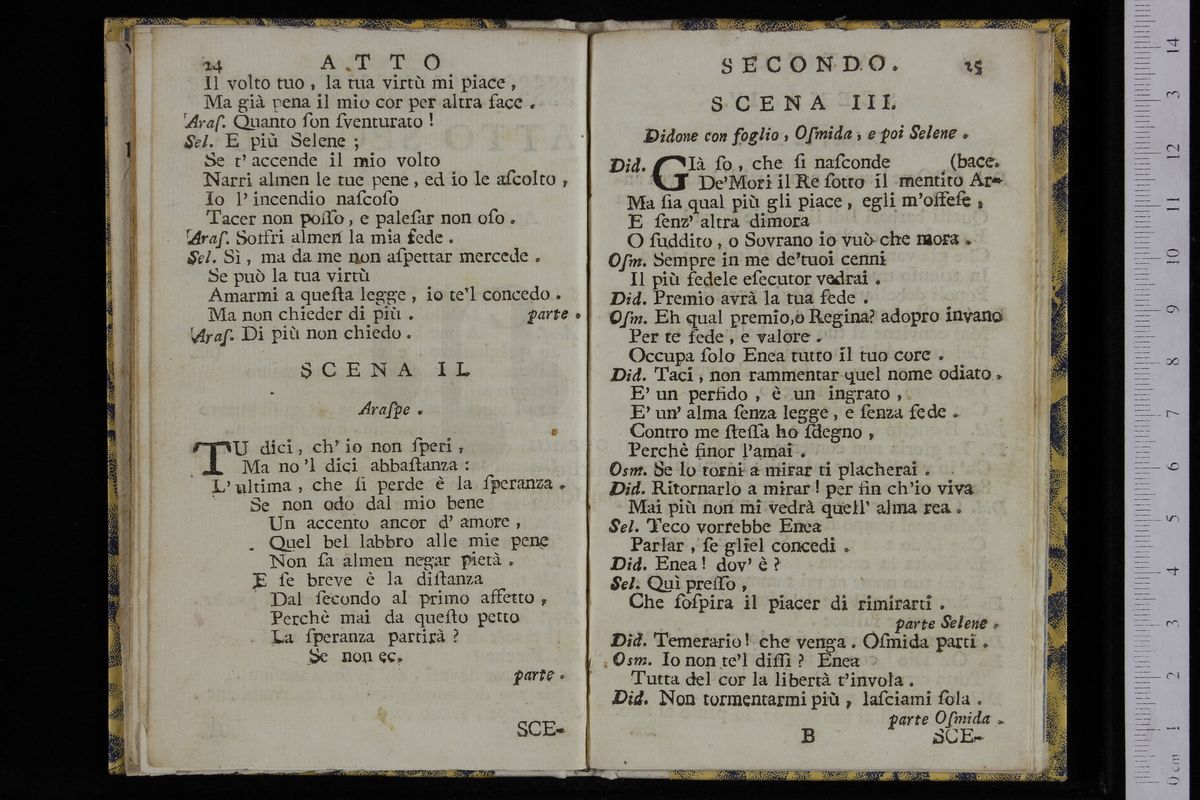 24 ATTO
Il volto tuo , la tua virtù mi piace ,
Ma già pena il mio cor per altra face .
Araſ. Quanto ſon ſventurato !
Sel. E più Selene ;
Se t' accende il mio volto
Narri almen le tue pene , ed io le aſcolto ,
Io l' incendio naſcoſo
Tacer non poſſo , e paleſar non oſo .
Araſ. Soffri almen la mia fede .
Sel. Sì , ma da me non aſpettar mercede .
Se può la tua virtù
Amarmi a queſta legge , io te'l concedo .
Ma non chieder di più . parte .
Araſ. Di più non chiedo .
SCENA II.
Araſpe .
TU dici, ch' io non ſperi ,
Ma no 'l dici abbaſtanza :
L' ultima , che ſi perde è la ſperanza .
Se non odo dal mio bene
Un accento ancor d' amore ,
Quel bel labbro alle mie pene
Non ſa almen negar pietà .
E ſe breve è la diſtanza
Dal ſecondo al primo affetto ,
Perchè mai da queſto petto
La ſperanza partirà ?
Se non ec.
parte .
SCE-
SECONDO. 25
SCENA III.
Didone con foglio , Oſmida , e poi Selene .
Did. GIà ſo , che ſi naſconde (bace.
De'Mori il Re ſotto il mentito Ar-
Ma ſia qual più gli piace , egli m'offeſe ,
E ſenz' altra dimora
O ſuddito , o Sovrano io vuò che mora .
Oſm. Sempre in me de'tuoi cenni
Il più fedele eſecutor vedrai .
Did. Premio avrà la tua fede .
Oſm. Eh qual premio,o Regina? adopro invano
Per te fede , e valore .
Occupa ſolo Enea tutto il tuo core .
Did. Taci , non rammentar quel nome odiato .
E' un perfido , è un ingrato ,
E' un' alma ſenza legge , e ſenza fede .
Contro me ſteſſa ho ſdegno ,
Perchè finor l'amai .
Osm. Se lo torni a mirar ti placherai .
Did. Ritornarlo a mirar ! per fin ch'io viva
Mai più non mi vedrà quell' alma rea .
Sel. Teco vorrebbe Enea
Parlar , ſe gliel concedi .
Did. Enea ! dov' è ?
Sel. Quì preſſo ,
Che ſoſpira il piacer di rimirarti .
parte Selene .
Did. Temerario ! che venga . Oſmida parti .
Osm. Io non te'l diſſi ? Enea
Tutta del cor la libertà t'invola .
Did. Non tormentarmi più , laſciami ſola .
parte Oſmida .
B SCE-
14
13
12
11
10
9
8
7
6
5
4
3
2
1
0 cm